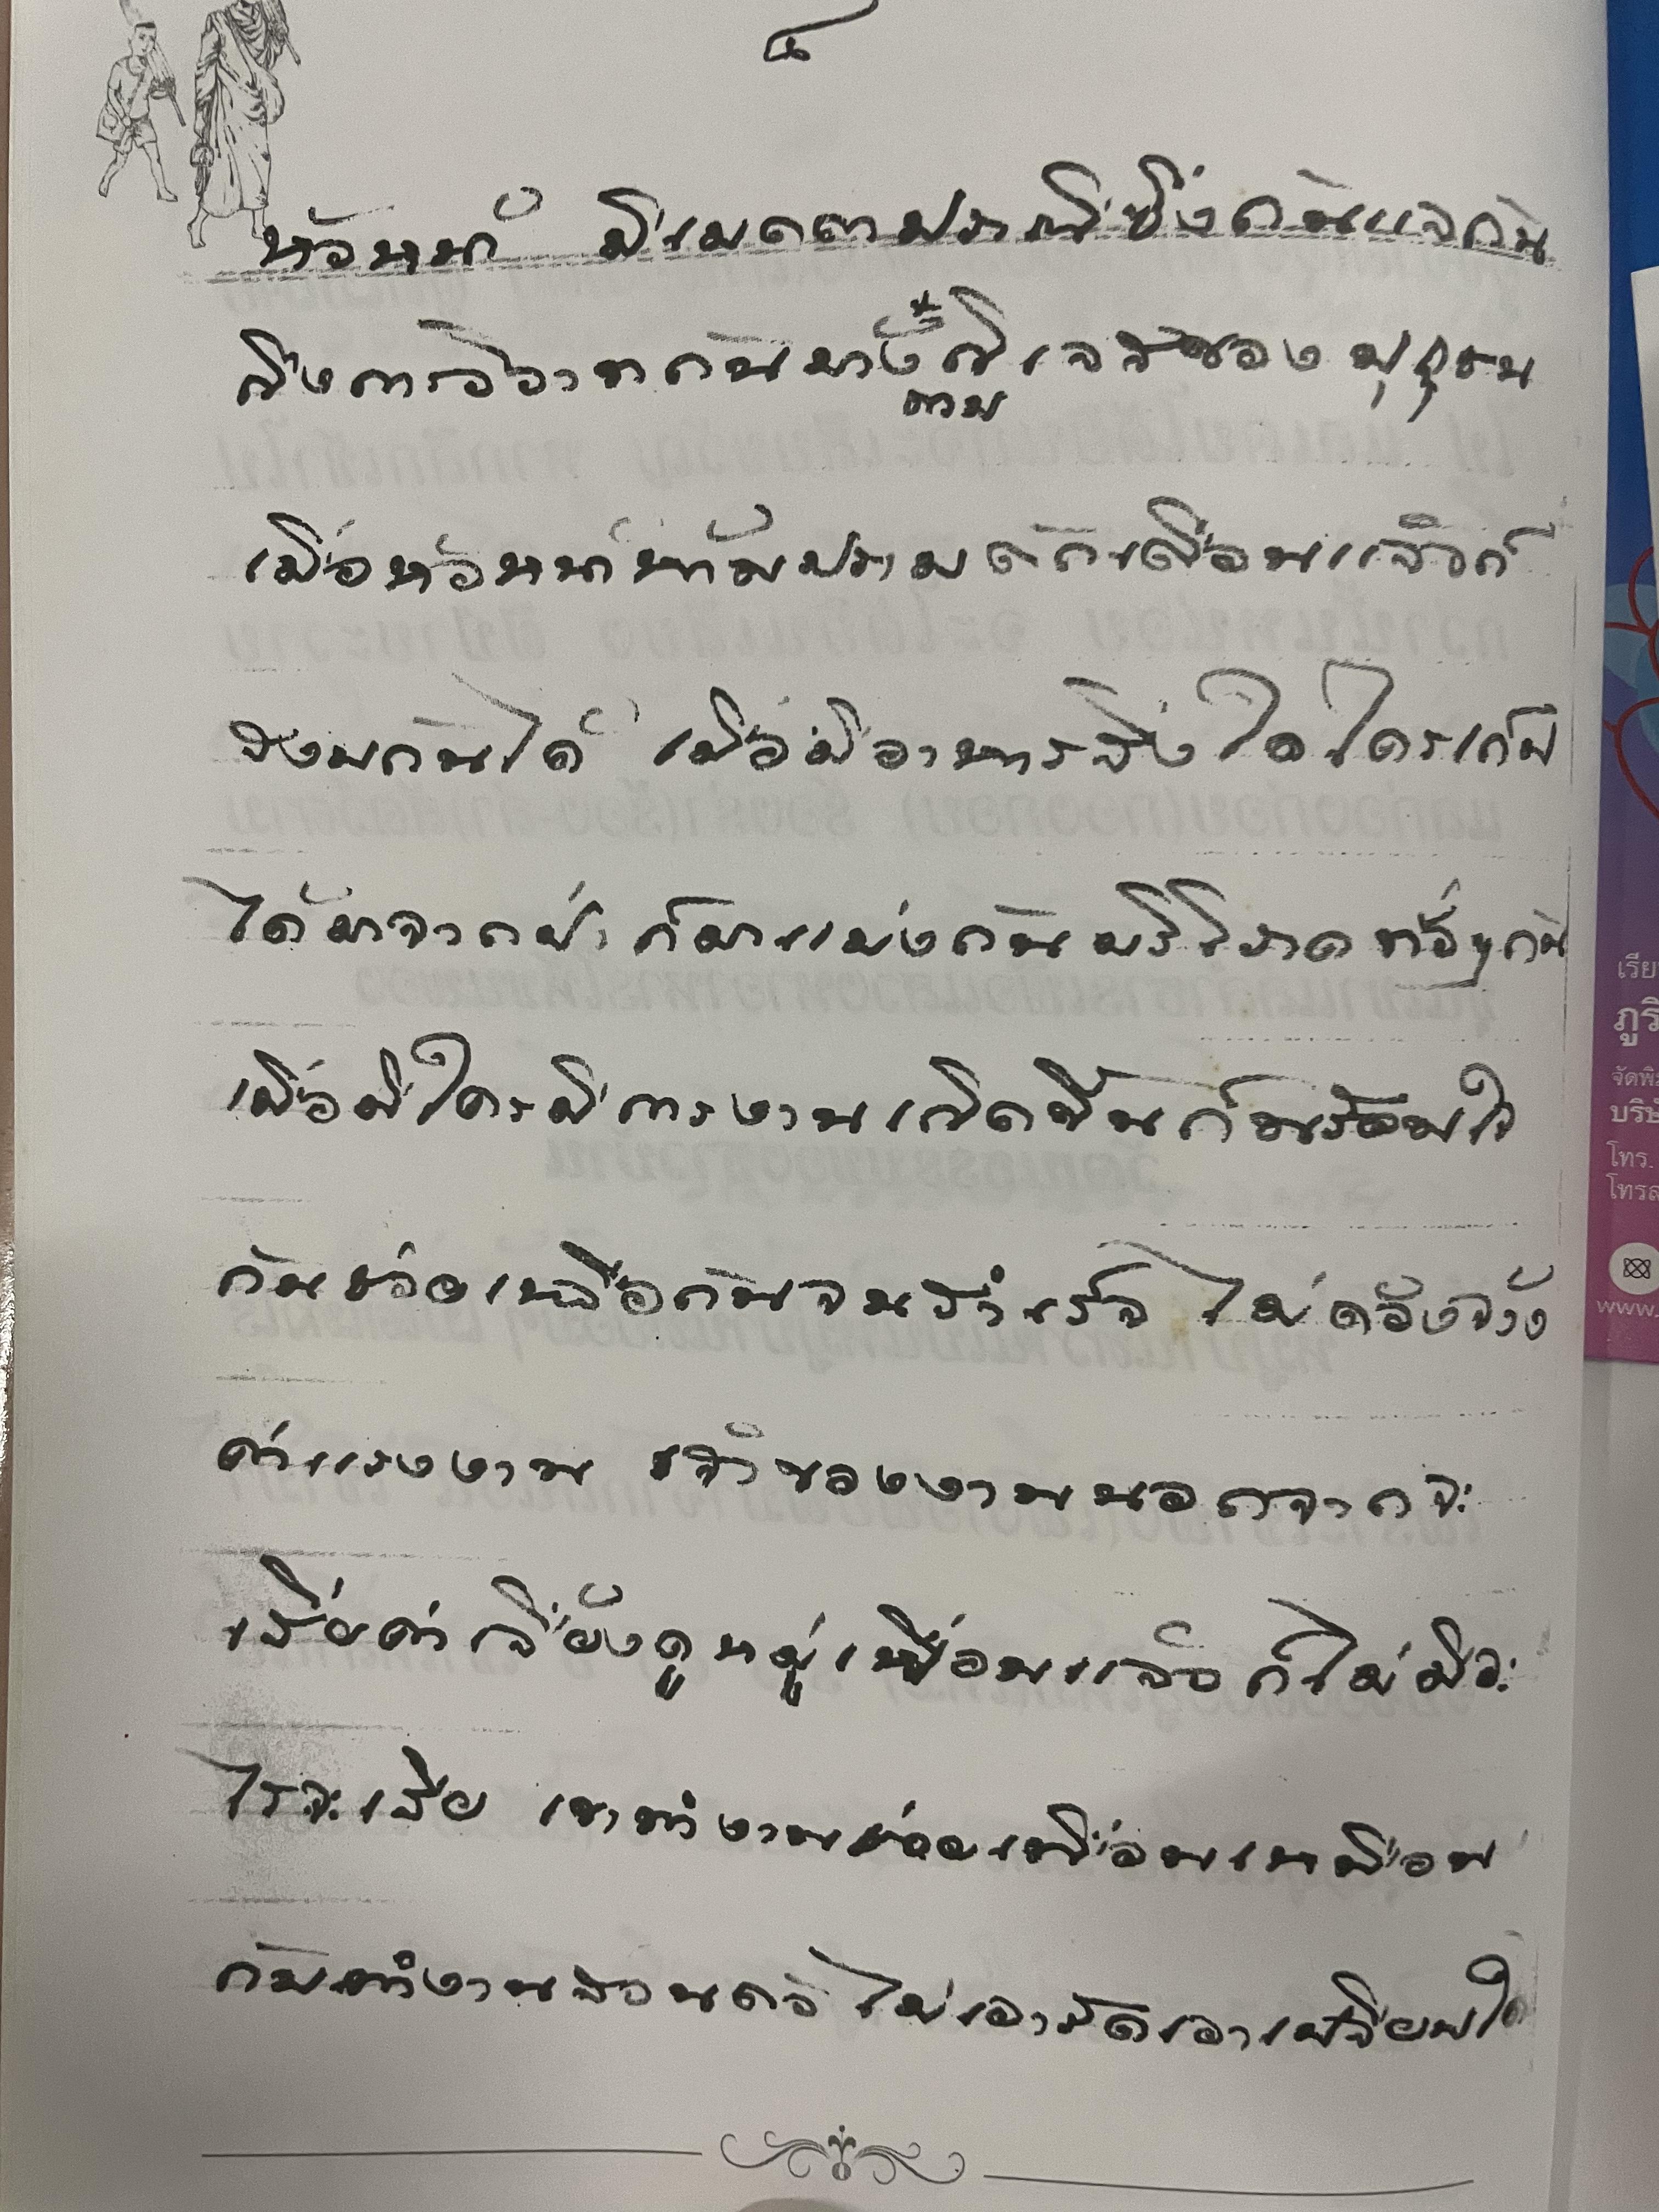 ๘
หัวหน้า มีเมตตาปรานีซึ่งกันแลกัน
ถึงการวิวาทกันบ้าง กิเลสของปุถุชน
ตาม
เมื่อหัวหน้าห้ามปรามตักเตือนแล้วก็
สงบกันได้ เมื่อมีอาหารสิ่งใดใครเก็บ
ได้มาจากป่า ก็มาแบ่งกันบริโภค ทั่วๆกัน
เมื่อมีใครมีการงานเกิดขึ้นก็พร้อมใจ
กันช่วยเหลือกันจนสำเร็จ ไม่ต้องจ้าง
ค่าแรงงาน เจ้าของงานนอกจากจะ
เสียค่าเลี้ยงดูหมู่เพื่อนแล้วก็ไม่มีอะ
ไรจะเสีย เขาทำงานช่วยเพื่อนเหมือน
กับทำงานส่วนตัว ไม่เอารัดเอาเปรียบใค
เรีย
ภูริ
จัดพิ
บริษั
โทร.
โทรส
www.